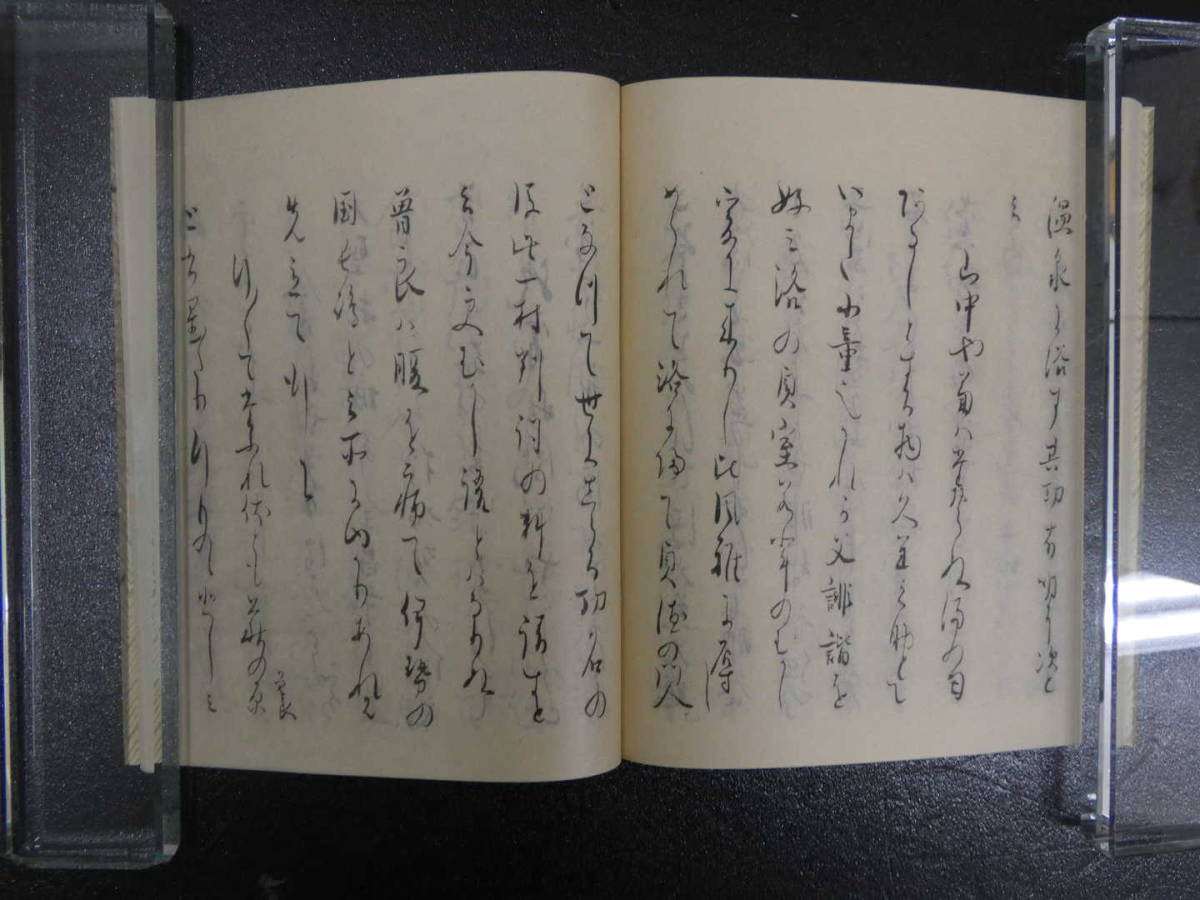 温泉に浴す其功有明に次と
云
山中や菊はたおらぬ湯の匂
あるしとする物は久米之助とて
いまた小童也かれか父誹諧を
好み洛の貞室若輩のむかし
爰に来りし比風雅に辱し
められて洛に帰て貞徳の門人
となつて世にしらる功名の
後此一村判詞の料を請すと
云今更むかし語とはなりぬ
曽良は腹を病て伊勢の
国長嶋と云所にゆかりあれは
先立て行に
行々てたふれ伏とも萩の原
曽良
と書置たり行ものゝ悲しミ